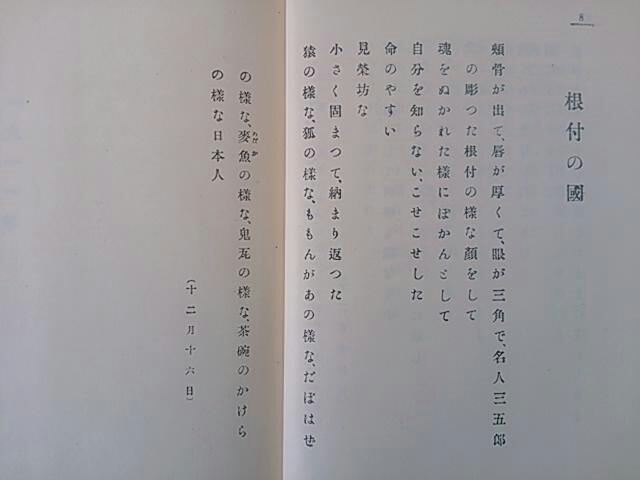 8
根付の國
頬骨が出て、唇が厚くて、眼が三角で、名人三五郎
の彫つた根付の様な顔をして
魂をぬかれた様にぽかんとして
自分を知らない、こせこせした
命のやすい
見榮坊な
小さく固まつて、納まり返つた
猿の様な、狐の様な、ももんがあの様な、だぼはぜ
の様な、麥魚の様な、鬼瓦の様な、茶碗のかけら
めだか
の様な日本人
(十二月十六日)